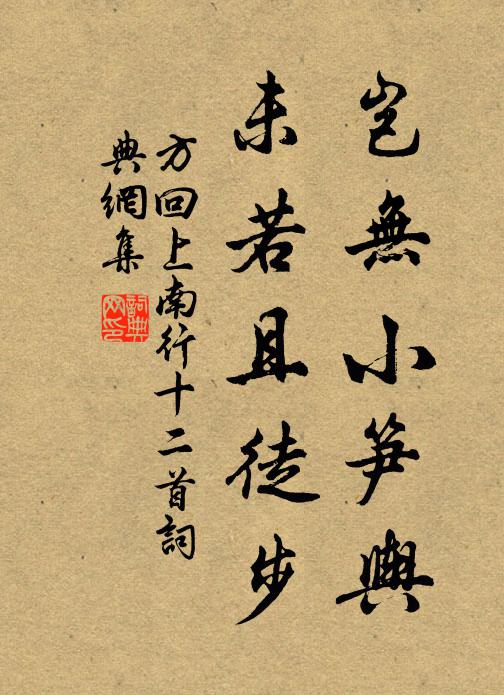 豈無小筍輿
未若且徒步
方回上南行十二首詞
典網集
詞典網印